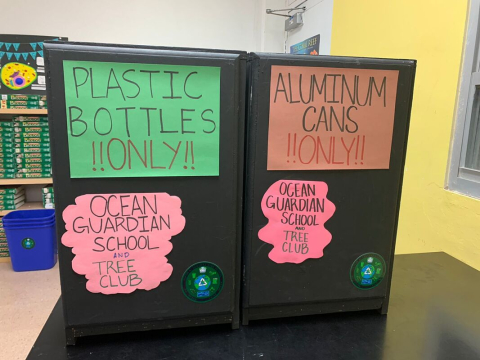 PLASTIC
BOTTLES
!!ONLY!!
OCEAN
GUARDIAN
SCHOOL
AND
TREE
CLUB
ALUMINUM
CANS
!!ONLY!!
OCEAN
GUARDIAN
SCHOOL
AND
TREE
CLUB